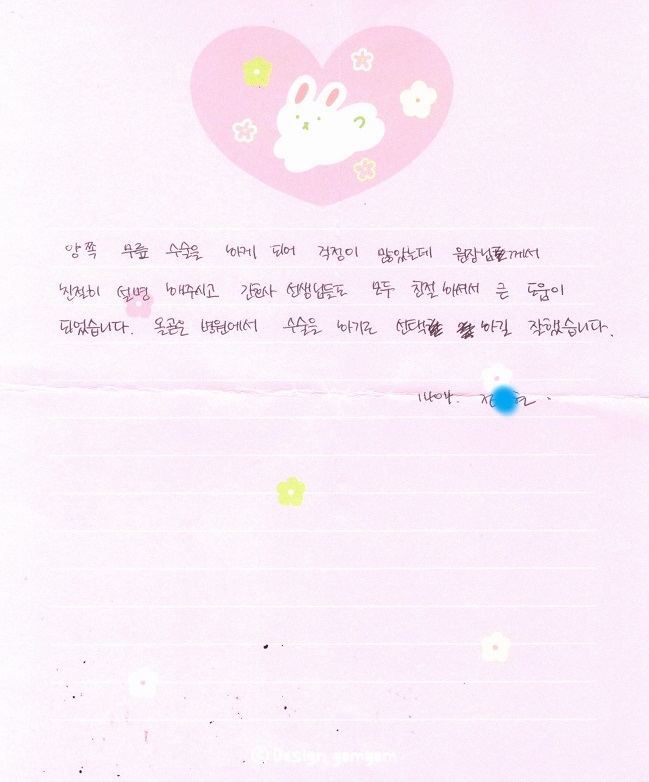 양쪽 무릎 수술을 하게 되어 걱정이 많았는데 원장님께서
친절히 설명 해주시고 간호사 선생님들도 모두 친절하셔서 큰 도움이
되었습니다. 올곧은 병원에서 수술을 하기로 선택 하길 잘했습니다.
Design_gomgom